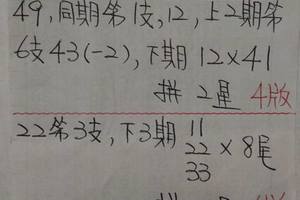 49,同期第1支,12,上2期第
6支43(-2),下期12×41
拼2星 4版
22第3支,下3期 11
22 × 8尾
33